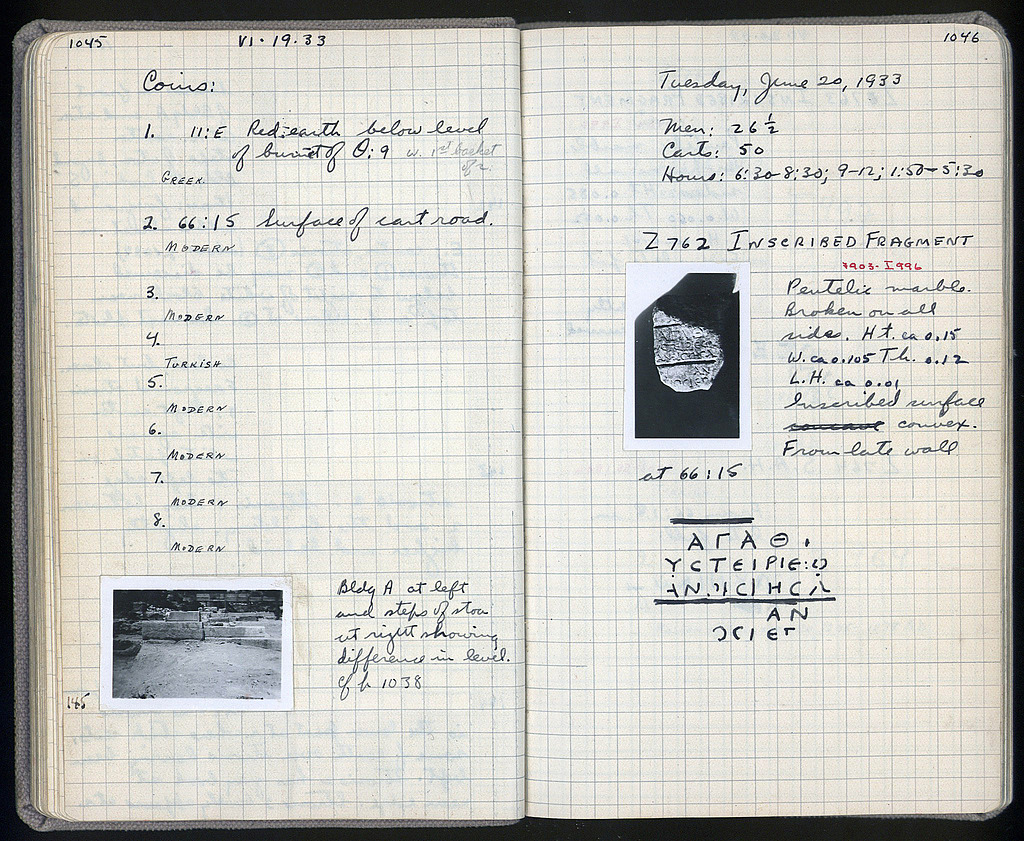 1045
VI · 19 · 33
Coins:
1. 11:E Red earth below level
of burnt of Θ:9 w. 1st basket
of
GREEK.
2. 66:15 Surface of cart road.
MODERN
3.
MODERN
4.
TURKISH
5.
MODERN
6.
MODERN
7.
MODERN
8.
MODERN
Bldg A at left
and steps of stoa
at right showing
difference in level.
cf p 1038
145
1046
Tuesday, June 20, 1933
Men: 26 ½
Carts: 50
Hours: 6:30-8:30; 9-12; 1:50-5:30
Z 762 INSCRIBED FRAGMENT
I 996
Pentelic marble.
Broken on all
sides. Ht. ca 0.15
W. ca 0.105 Th. 0.12
L.H. ca 0.01
Inscribed surface
concave convex.
From late wall
at 66:15
ΑΓΑΘ
ΥϹΤΕΙΡΙΕ
ΑΝ ΗϹ
ΑΝ
ϹΙΕΤ